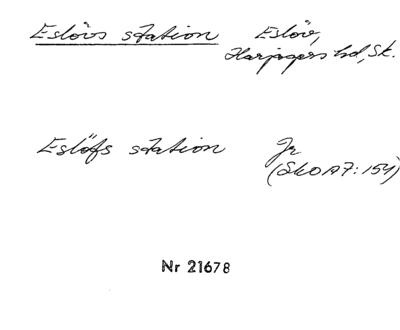 Eslövs station Eslöv,
Harjagers hd, Sk.
Eslöfs station Jr
(SkO A7:154)
Nr 21678